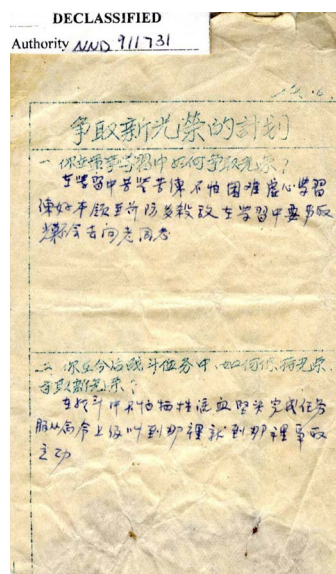 DECLASSIFIED
Authority NND 911731
争取新光荣的計划
一 你在積季学習中如何争取光荣？
在学習中苦学苦練不怕困难虚心学習
練好本領 多殺敌在学習中要争取
去向老同志
二 你在今后战斗任务中，如何保持光荣，
争取新光荣？
在战斗中不怕牺牲流血坚决完成任务
服从命令上級叫到那裡就到那裡争取
立功